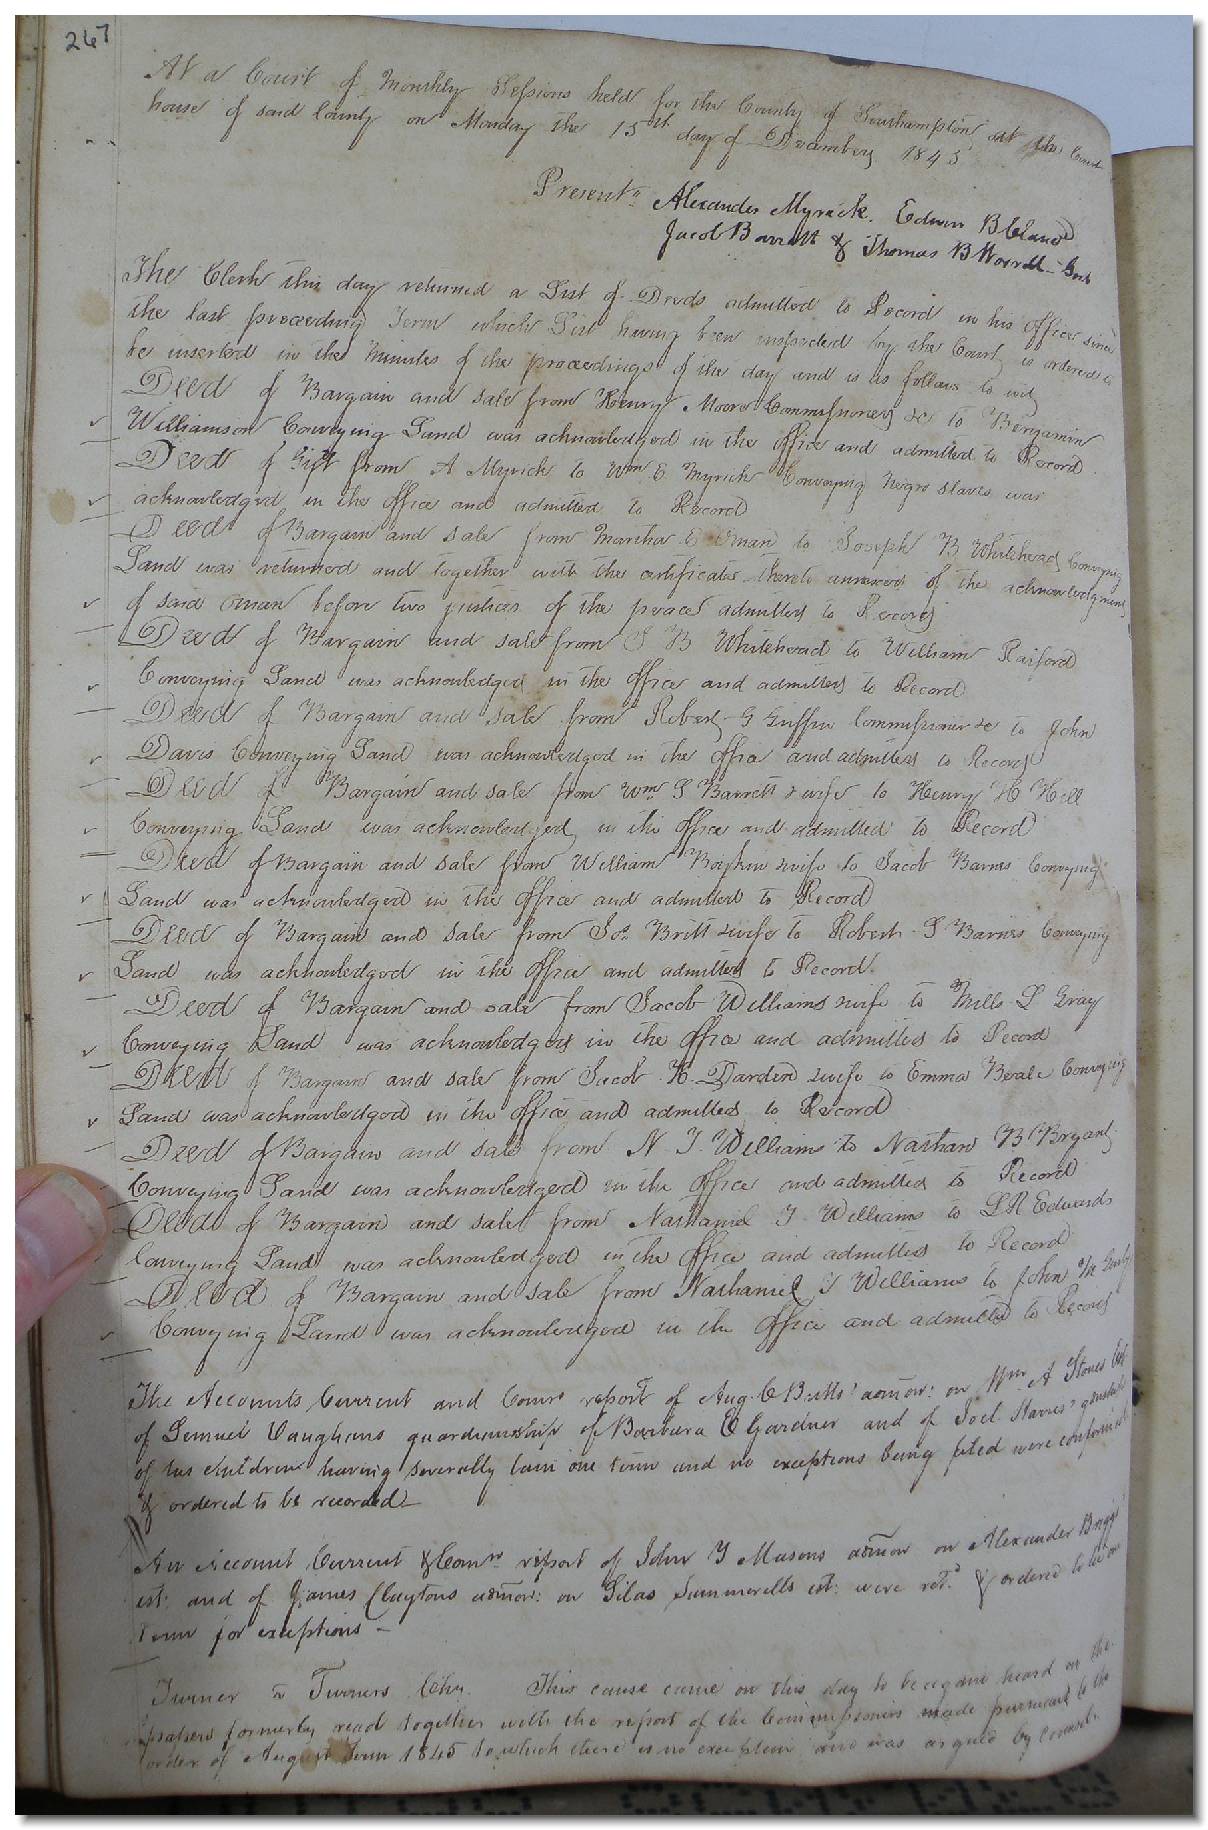 267
At a Court of Monthly Sessions held for the County of Southampton at the Court
house of said County on Monday the 15th day of December 1845
Present Alexander Myrick. Edwin B Claud
Jacob Barrett & Thomas B Worrell Gent
The Clerk this day returned a List of Deeds admitted to Record in his Office since
the last preceeding Term which List having been inspected by the Court is ordered to
be inserted in the minutes of the proceedings of the day and is as follows to wit
Deed of Bargain and sale from Henry Moore Commissioner &c to Benjamin
Williamson Conveying Land was acknowledged in the office and admitted to Record.
Deed of Gift from A Myrick to Wm E Myrick Conveying negro slaves was
acknowledged in the office and admitted to Record
Deed of Bargain and sale from Martha E Oman to Joseph B Whitehead Conveying
Land was returned and together with the certificate thereto annexed of the acknowledgment
of said Oman before two justices of the peace admitted to Record
Deed of Bargain and sale from J B Whitehead to William Raiford
Conveying Land was acknowledged in the office and admitted to Record
Deed of Bargain and sale from Robert G Griffin Commissioner &c to John
Davis Conveying Land was acknowledged in the office and admitted to Record
Deed of Bargain and sale from Wm S Barrett & wife to Henry H Hill
Conveying Land was acknowledged in the office and admitted to Record
Deed of Bargain and sale from William Boykin & wife to Jacob Barnes Conveying
Land was acknowledged in the office and admitted to Record
Deed of Bargain and sale from Jos. Britt & wife to Robert S Barnes Conveying
Land was acknowledged in the office and admitted to Record.
Deed of Bargain and sale from Jacob Williams & wife to Mills L Gray
Conveying Land was acknowledged in the office and admitted to Record
Deed of Bargain and sale from Jacob H. Darden & wife to Emma Beale Conveying
Land was acknowledged in the office and admitted to Record
Deed of Bargain and sale from N. T. Williams to Nathan B Bryant
Conveying Land was acknowledged in the office and admitted to Record
Deed of Bargain and sale from Nathaniel T Williams to L R Edwards
Conveying Land was acknowledged in the office and admitted to Record
Deed of Bargain and sale from Nathaniel T Williams to John
Conveying Land was acknowledged in the office and admitted to Record
The Accounts Current and Comrs report of Aug. C Butts' admor: on Wm A Stones Est
of Lemuel Vaughans guardianship of Barbara E Gardner and of Joel
of his children having severally lain one term and no exceptions being filed were confirmed
& ordered to be recorded
An Account Current & Comrs report of John Y Masons admor on Alexander Briggs'
est: and of James Claytons admor: on Silas Summerells est: were retd. & ordered to lie one
term for exceptions –
Turner v Turners Chy. This cause came on this day to be again heard on the
papers formerly read together with the report of the Commissioners made pursuant to the
order of August Term 1845 to which there is no exception and was argued by Counsel.